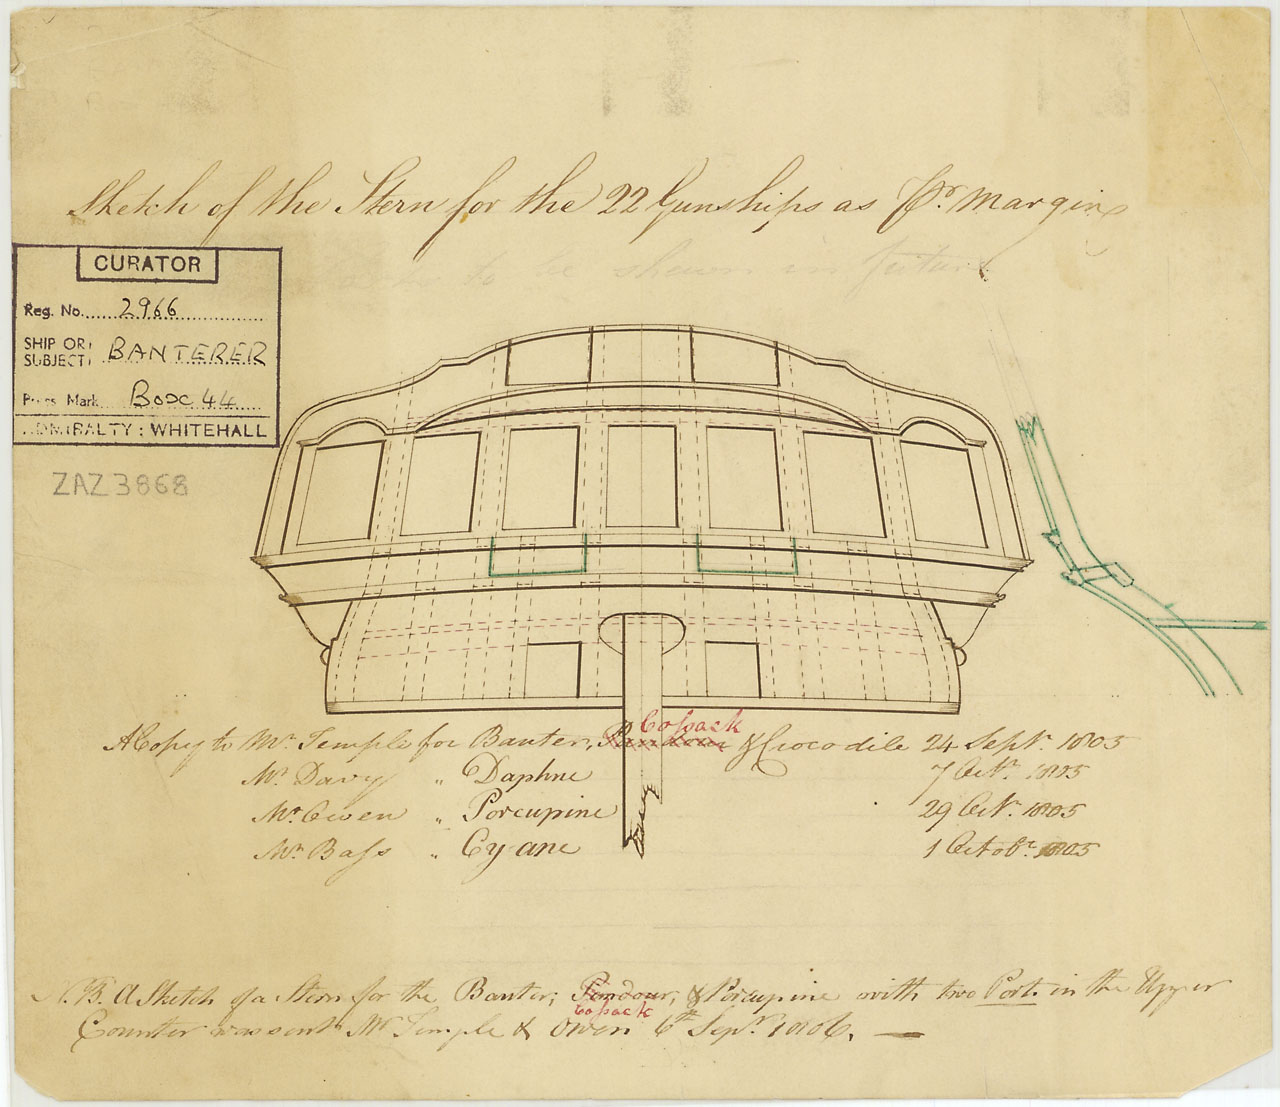 Sketch of the Stern for the 22 Gunships as Pr. margin
to be shewn in future
CURATOR
Reg. No. 2966
SHIP OR SUBJECT: BANTERER
Press Mark Box 44
ADMIRALTY: WHITEHALL
ZAZ3868
Cossack
A Copy to Mr. Temple for Banter, Pandour & Crocodile 24 Sept. 1805
Mr. Davy " Daphne 7 Oct. 1805
Mr. Owen " Porcupine 29 Oct. 1805
Mr. Bass " Cyane 1 Octobr. 1805
N.B. A Sketch of a Stern for the Banter, Pandour, & Porcupine with two Ports in the Upper
Cossack
Counter was sent Mr. Temple & Owen 6th Sepr. 1806.